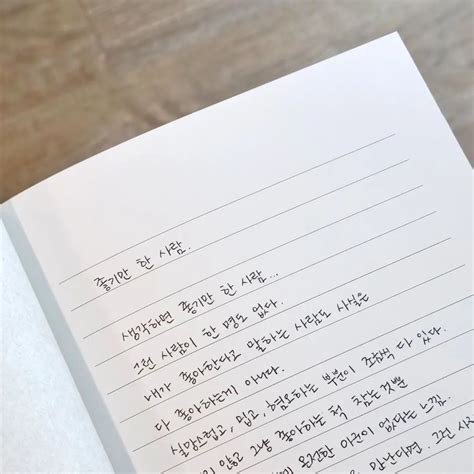 좋기만 한 사람.
생각하면 좋기만 한 사람...
그런 사람이 한 명도 없다.
내가 좋아한다고 말하는 사람도 사실은
다 좋아하는게 아니다.
실망스럽고, 밉고, 혐오하는 부분이 조금씩 다 있다.
않고 그냥 좋아하는 척 참는것뿐
온전한 이곳이 없다는 느낌.
만난다면. 그런 사